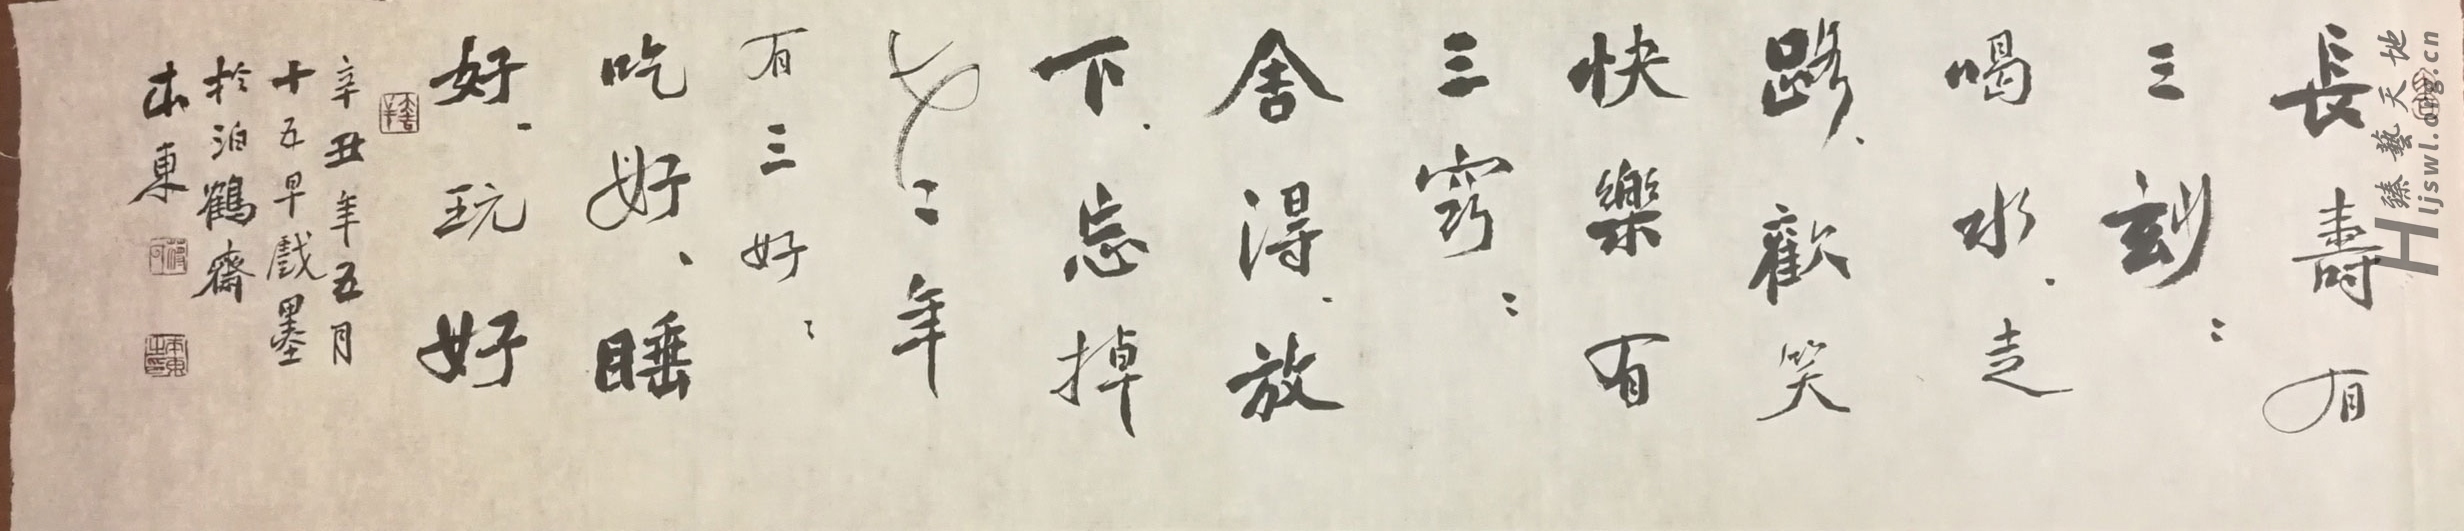 長壽有
三刻：
喝水、走
路、歡笑
快樂有
三窍：
舍得、放
下、忘掉
年
有三好：
吃好、睡
好、玩好
辛丑年五月
十五早戲墨
於泊鶴齋
本東
本東之印
臻藝天地
ljswl.org.cn